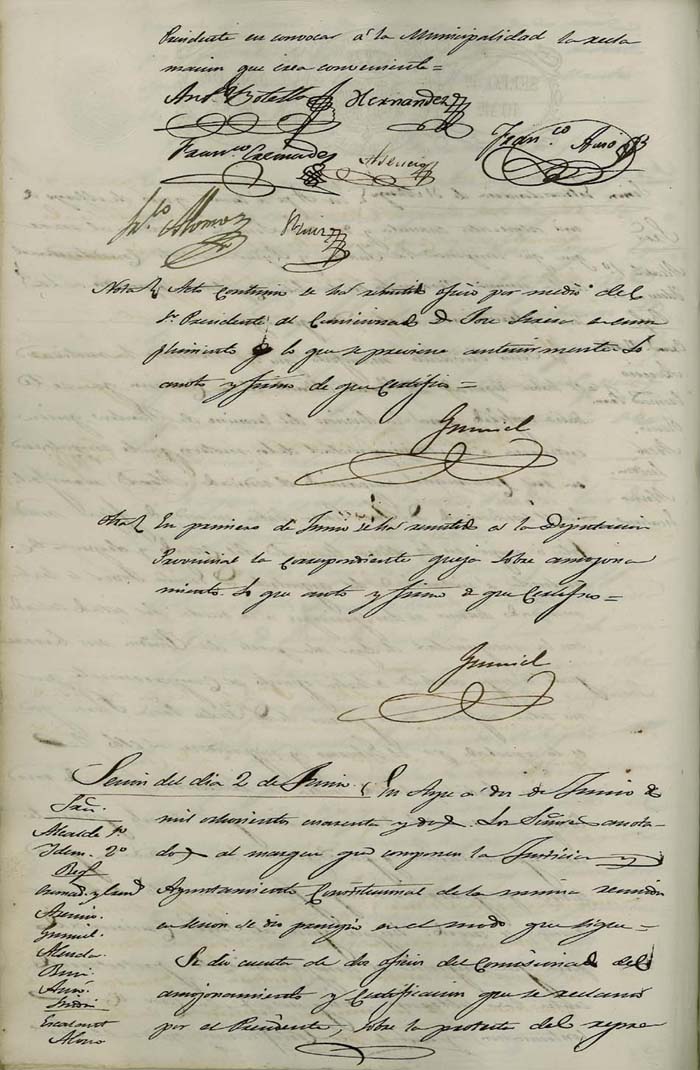 Presidente en convocar á la Municipalidad la recla
macion que crea conveniente=
Ant.o Botella Hernandez
Franco. Cremades Asencio Fran.co Aisó
Fr.co Alonso Ruiz
Nota Acto continuo se ha remitido oficio por medio del
Sr. Presidente al Comisionado D. Jose en cum
plimiento de lo que se previene anteriormente. Lo
anoto y firmo de que Certifico=
Gumiel
Otra En primero de Junio se ha remitido a la Diputacion
Provincial la correspondiente queja sobre amojona
miento. Lo que anoto y firmo de que Certifico=
Gumiel
Sesion del dia 2 de Junio. En a dos de Junio de
mil ochocientos cuarenta y dos. Los Señores anota
dos al margen que componen la Justicia y
Ayuntamiento Constitucional de la misma reunidos
en sesion se dio principio en el modo que sigue=
Se dio cuenta de dos oficios del Comisionado del
amojonamiento y Certificacion que se reclamó
por el Presidente, sobre la protesta del repre
Sres.
Alcalde 1o
Idem. 2o
Reg.
Asencio.
Gumiel.
Ruiz.
Aisó.
Sindi
Escalant
Alonso